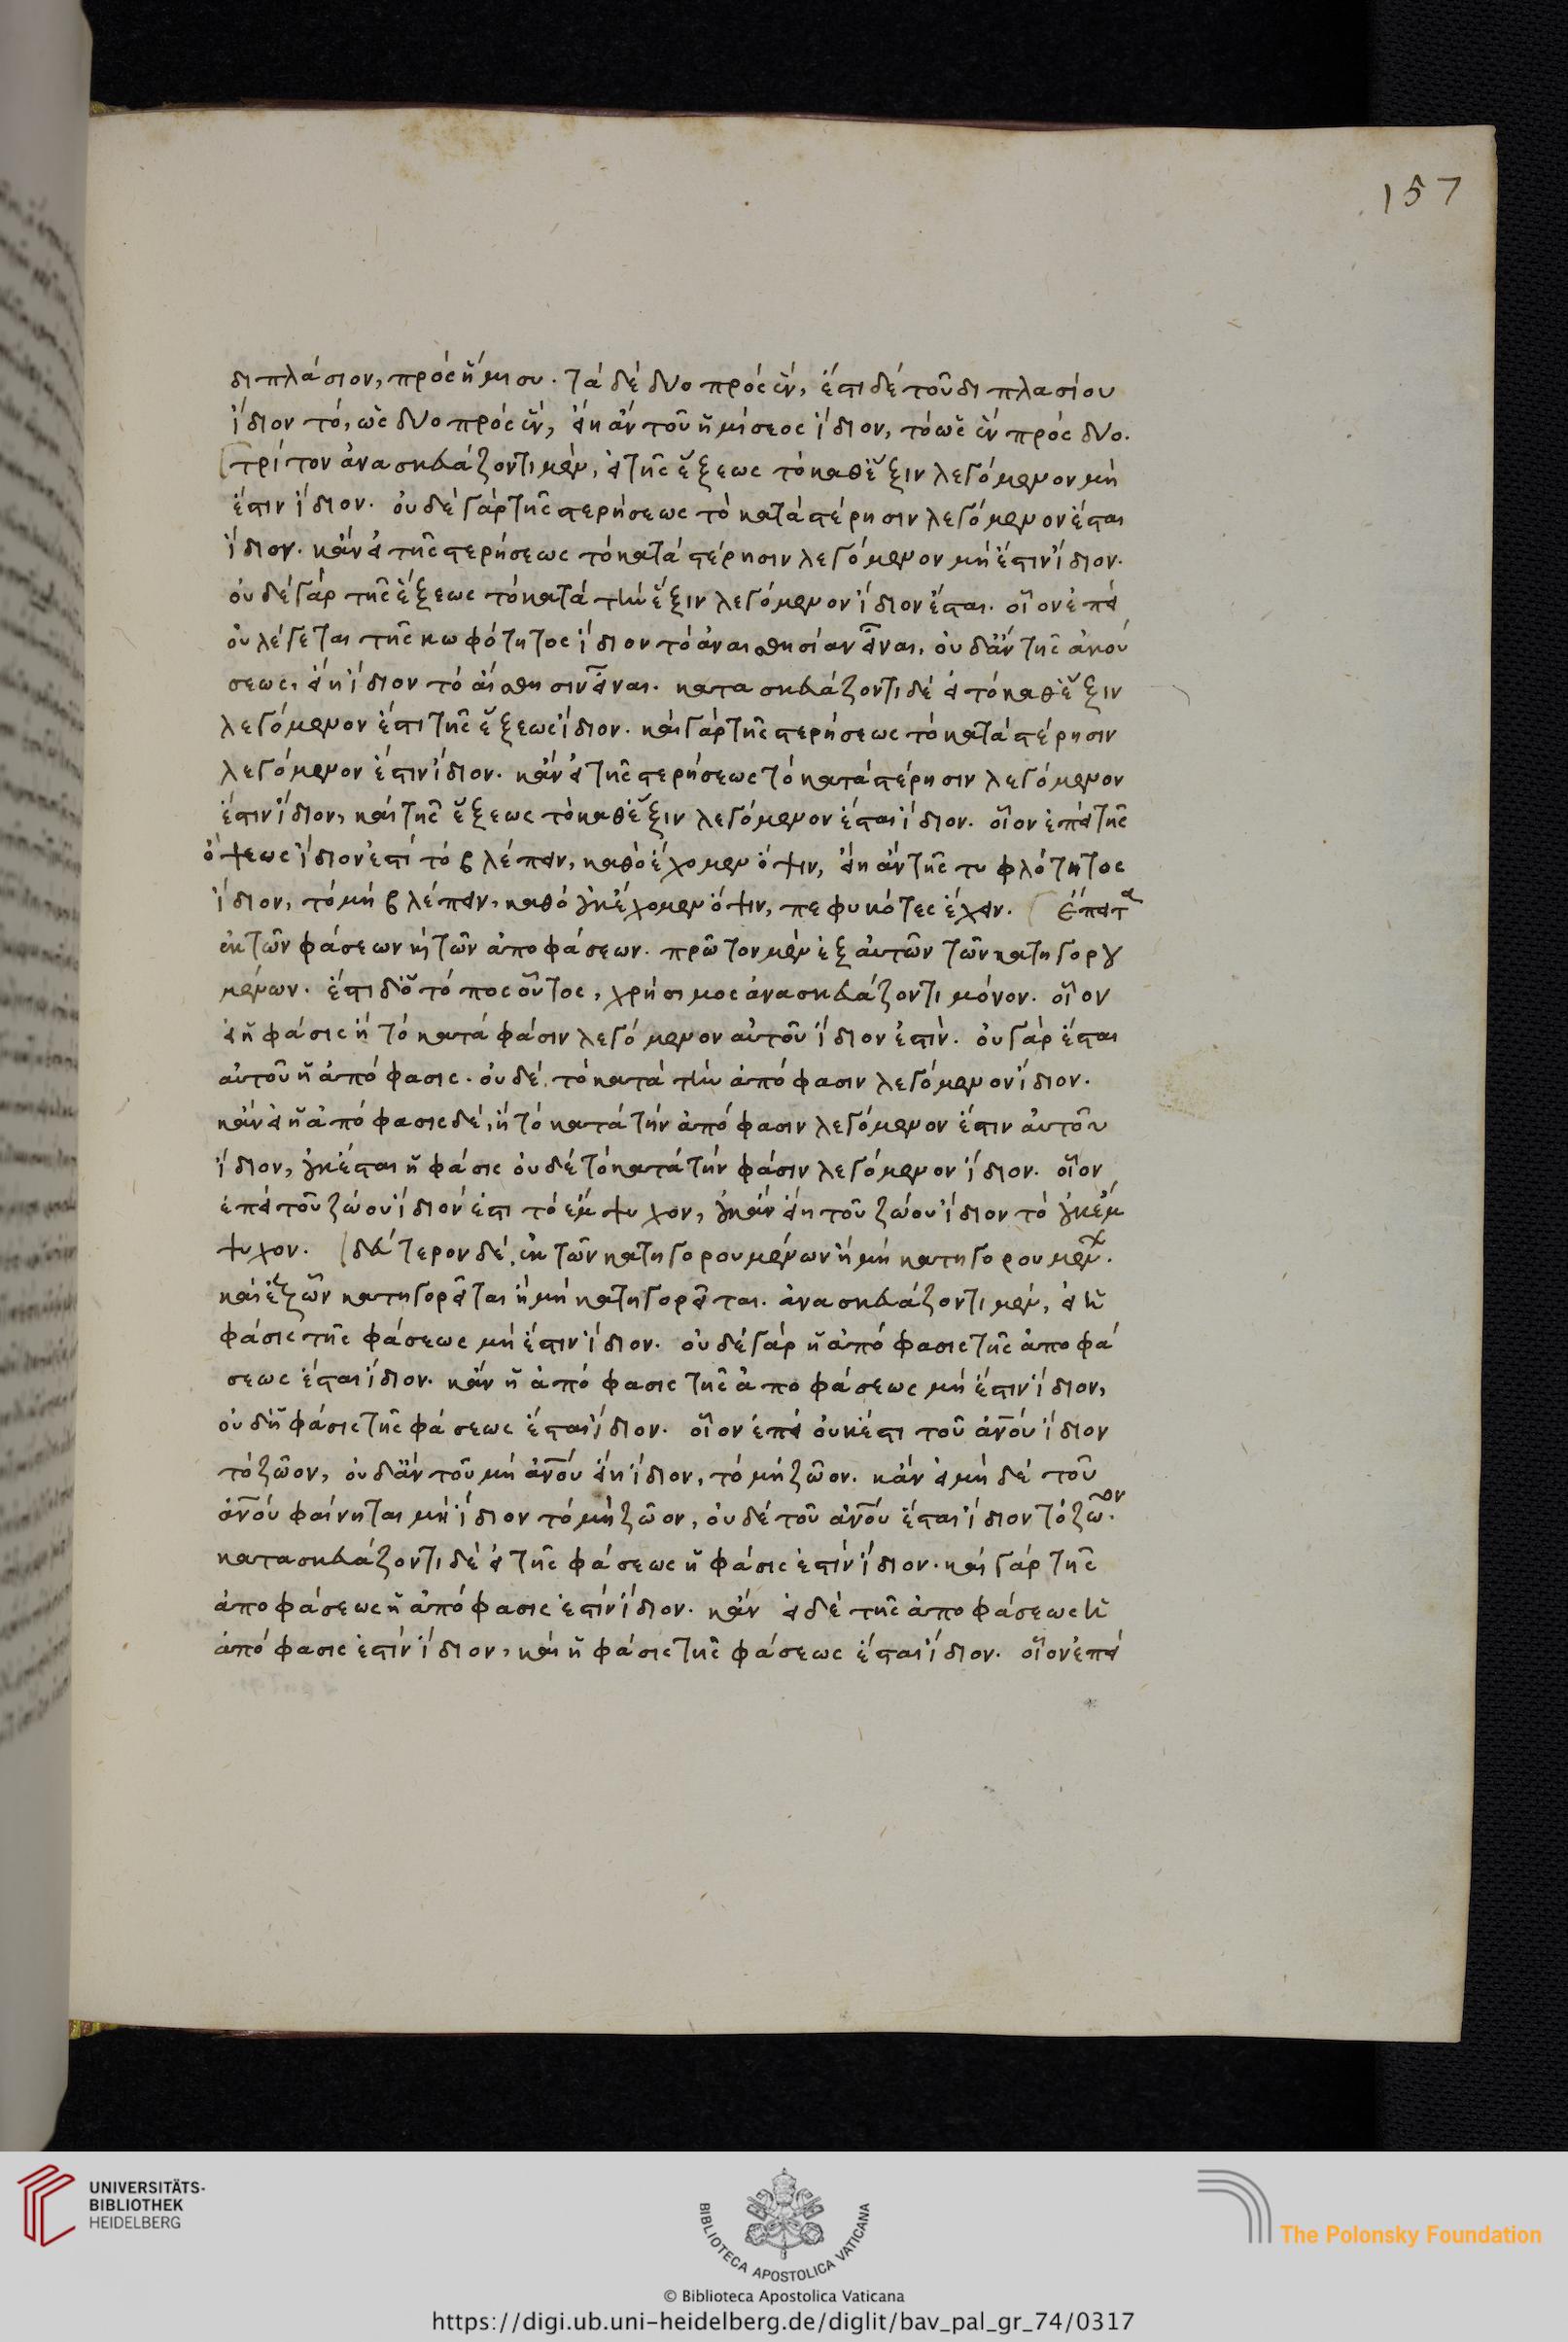 157
διπλάσιον, πρὸς ἥμισυ. τὰ δὲ δύο πρὸς ἕν, ἔστι δὲ τοῦ διπλασίου
ἴδιον τό, ὡς δύο πρὸς ἕν, εἴη ἂν τοῦ ἡμίσεος ἴδιον, τὸ ὡς ἓν πρὸς δύο.
τρίτον ἀνασκευάζοντι μέν, εἰ τῆς ἕξεως τὸ καθ' ἕξιν λεγόμενον μή
ἐστιν ἴδιον. οὐδὲ γὰρ τῆς στερήσεως τὸ κατὰ στέρησιν λεγόμενον ἔσται
ἴδιον. κἂν εἰ τῆς στερήσεως τὸ κατὰ στέρησιν λεγόμενον μή ἐστιν ἴδιον.
οὐδὲ γὰρ τῆς ἕξεως τὸ κατὰ τὴν ἕξιν λεγόμενον ἴδιον ἔσται. οἷον ἐπεὶ
οὐ λέγεται τῆς κωφότητος ἴδιον τὸ ἀναισθησίαν εἶναι, οὐδ' ἂν τῆς ἀκού
σεως, εἴη ἴδιον τὸ αἴσθησιν εἶναι. κατασκευάζοντι δὲ εἰ τὸ καθ' ἕξιν
λεγόμενον ἐστὶ τῆς ἕξεως ἴδιον. καὶ γὰρ τῆς στερήσεως τὸ κατὰ στέρησιν
λεγόμενον ἐστιν ἴδιον. κἂν εἰ τῆς στερήσεως τὸ κατὰ στέρησιν λεγόμενον
ἐστιν ἴδιον, καὶ τῆς ἕξεως τὸ καθ' ἕξιν λεγόμενον ἔσται ἴδιον. οἷον ἐπεὶ τῆς
ὄψεως ἴδιον ἐστὶ τὸ βλέπειν, καθὸ ἔχομεν ὄψιν, εἴη ἂν τῆς τυφλότητος
ἴδιον, τὸ μὴ βλέπειν, καθὸ οὐκ ἔχομεν ὄψιν, πεφυκότες ἔχειν. Ἔπειτα
ἐκ τῶν φάσεων καὶ τῶν ἀποφάσεων. πρῶτον μὲν ἐξ αὐτῶν τῶν κατηγορου
μένων. ἔστι δ' ὁ τόπος οὗτος, χρήσιμος ἀνασκευάζοντι μόνον. οἷον
εἰ ἡ φάσις ἢ τὸ κατὰ φάσιν λεγόμενον αὐτοῦ ἴδιον ἐστίν. οὐ γὰρ ἔσται
αὐτοῦ ἡ ἀπόφασις. οὐδὲ τὸ κατὰ τὴν ἀπόφασιν λεγόμενον ἴδιον.
κἂν εἰ ἡ ἀπόφασις δέ, ἢ τὸ κατὰ τὴν ἀπόφασιν λεγόμενον ἐστιν αὐτοῦ
ἴδιον, οὐκ ἔσται ἡ φάσις οὐδὲ τὸ κατὰ τὴν φάσιν λεγόμενον ἴδιον. οἷον
ἐπεὶ τοῦ ζώου ἴδιόν ἐστι τὸ ἔμψυχον, οὐκ ἂν εἴη τοῦ ζώου ἴδιον τὸ οὐκ ἔμ
ψυχον. δεύτερον δέ, ἐκ τῶν κατηγορουμένων ἢ μὴ κατηγορουμένων.
καὶ ἐξ ὧν κατηγορεῖται ἢ μὴ κατηγορεῖται. ἀνασκευάζοντι μέν, εἰ ἡ
φάσις τῆς φάσεως μή ἐστιν ἴδιον. οὐδὲ γὰρ ἡ ἀπόφασις τῆς ἀποφά
σεως ἔσται ἴδιον. κἂν ἡ ἀπόφασις τῆς ἀποφάσεως μή ἐστιν ἴδιον,
οὐδ' ἡ φάσις τῆς φάσεως ἔσται ἴδιον. οἷον ἐπεὶ οὐκ ἔστι τοῦ ἀνου ἴδιον
τὸ ζῶον, οὐδ' ἂν τοῦ μὴ ἀνου εἴη ἴδιον, τὸ μὴ ζῶον. κἂν εἰ μὴ δὲ τοῦ
ἀνου φαίνηται μὴ ἴδιον τὸ μὴ ζῶον, οὐδὲ τοῦ ἀνου ἔσται ἴδιον τὸ ζῶον.
κατασκευάζοντι δὲ εἰ τῆς φάσεως ἡ φάσις ἐστὶν ἴδιον. καὶ γὰρ τῆς
ἀποφάσεως ἡ ἀπόφασις ἐστὶν ἴδιον. κἂν εἰ δὲ τῆς ἀποφάσεως ἡ
ἀπόφασις ἐστὶν ἴδιον, καὶ ἡ φάσις τῆς φάσεως ἔσται ἴδιον. οἷον ἐπεὶ
UNIVERSITÄTS-
BIBLIOTHEK
HEIDELBERG
BIBLIOTECA APOSTOLICA VATICANA
The Polonsky Foundation
© Biblioteca Apostolica Vaticana
https://digi.ub.uni-heidelberg.de/diglit/bav_pal_gr_74/0317